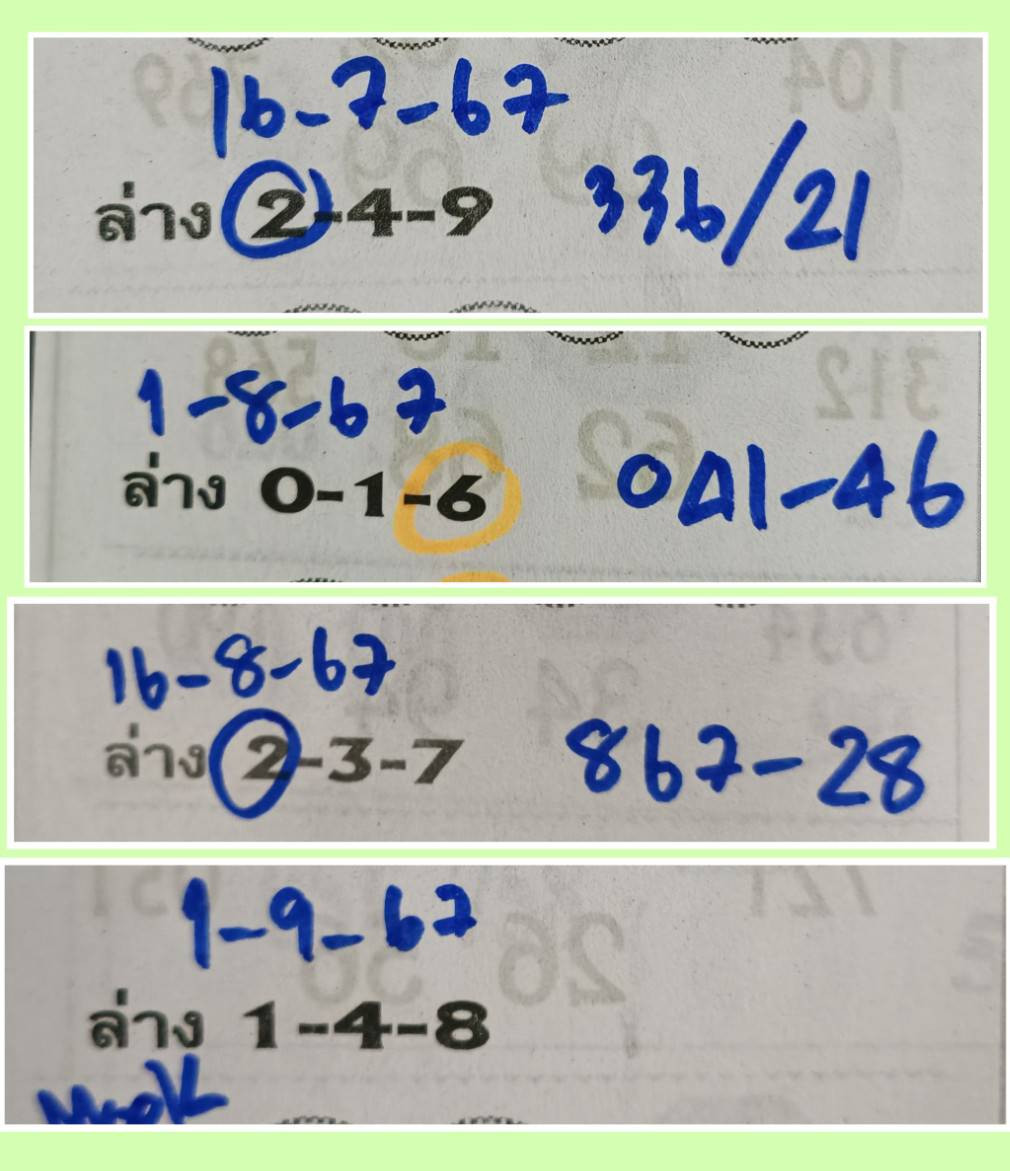 16-7-67
ล่าง 2-4-9 336/21
1-8-67
ล่าง 0-1-6 041-46
16-8-67
ล่าง 2-3-7 867-28
1-9-67
ล่าง 1-4-8